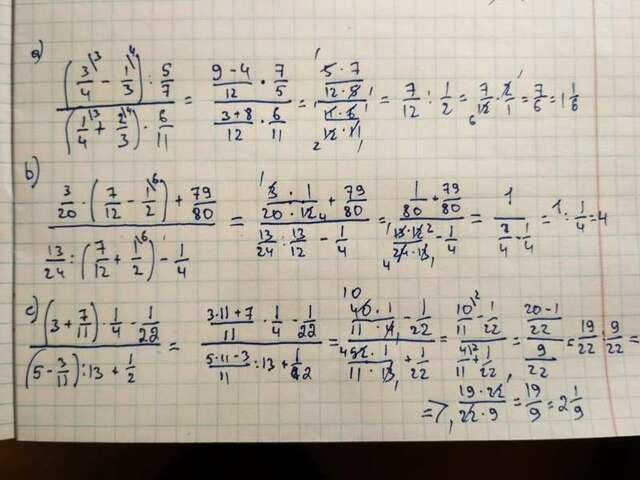 a) ((3/4\3 - 1/3\4) : 5/7) / ((1/4\3 + 2/3\4) · 6/11) = ((9-4)/12 · 7/5) / ((3+8)/12 · 6/11) = ((5·7)/(12·5)) / ((11·6)/(12·11)) = 7/12 : 1/2 = 7/12 · 2/1 = 7/6 = 1 1/6
b) (3/20 · (7/12 - 1/2\6) + 79/80) / (13/24 : (7/12 + 1/2\6) - 1/4) = ((3·1)/(20·12) + 79/80) / (13/24 : 13/12 - 1/4) = (1/80 + 79/80) / ((13·12)/(24·13) - 1/4) = 1 / (2/4 - 1/4) = 1 : 1/4 = 4
c) ((3 + 7/11) · 1/4 - 1/22) / ((5 - 3/11) : 13 + 1/2) = ((3·11+7)/11 · 1/4 - 1/22) / ((5·11-3)/11 : 13 + 1/22) = ((40·1)/(11·4) - 1/22) / ((52·1)/(11·13) + 1/22) = (10/11\2 - 1/22) / (4/11\2 + 1/22) = ((20-1)/22) / (9/22) = 19/22 : 9/22 =
= (19·22)/(22·9) = 19/9 = 2 1/9